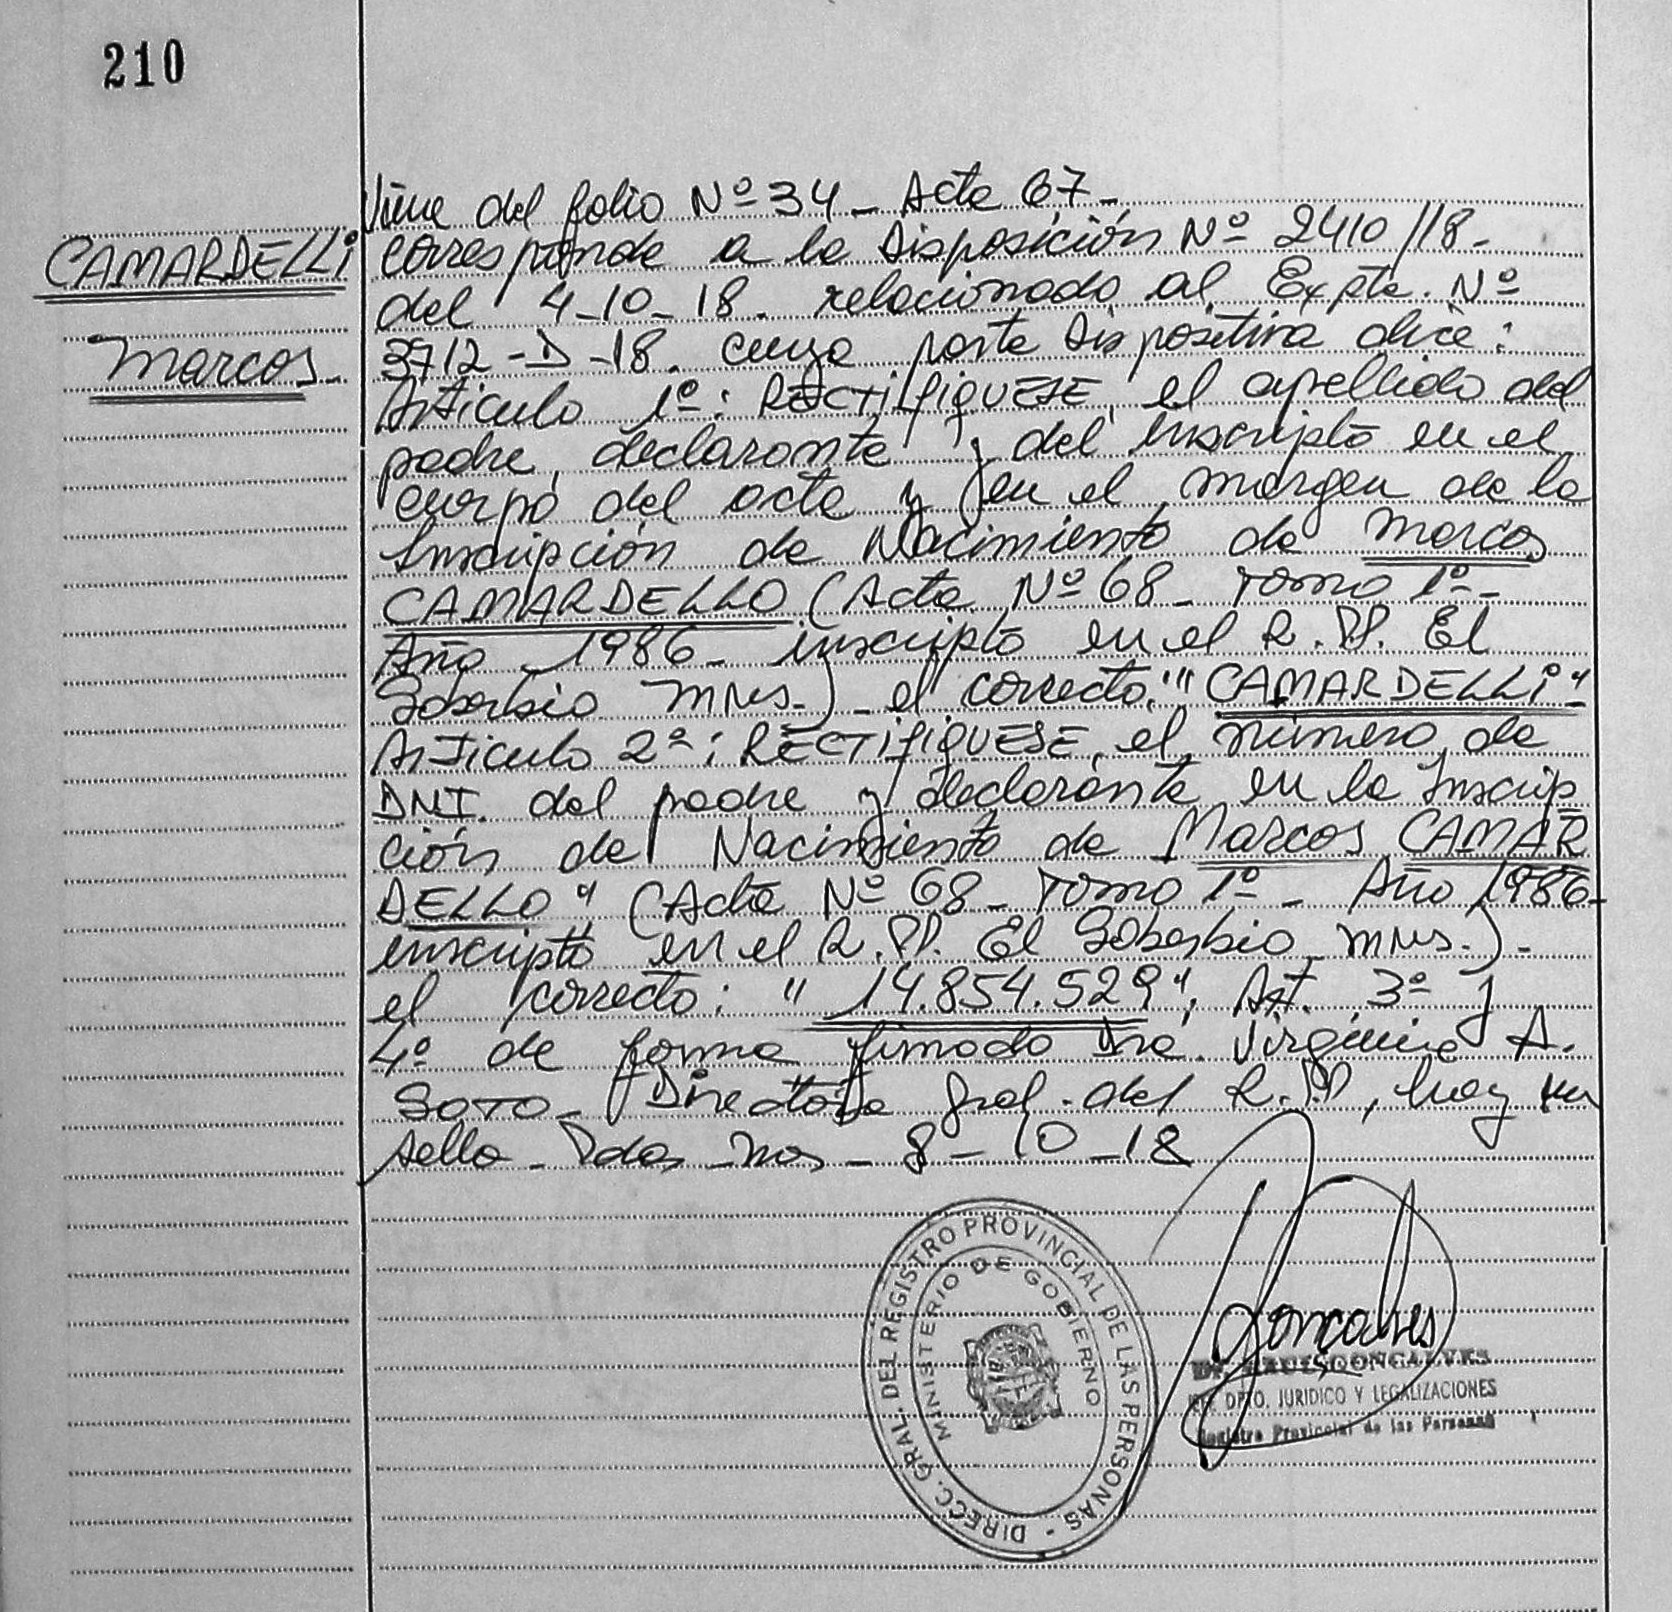 210
CAMARDELLI
Marcos-
Viene del folio Nº 34 - Acta 67-
corresponde a la Disposición Nº 2410/18-
del 4-10-18. relacionado al Expte. Nº
3712-D-18. cuya parte Dispositiva dice:
Articulo 1º: RECTIFIQUESE, el apellido del
padre, declarante y del inscripto en el
cuerpo del acta y en el margen de la
Inscripción de Nacimiento de Marcos
CAMARDELLO (Acta Nº 68- Tomo 1º-
Año 1986- inscripto en el R.PP. El
Soberbio Mnes.) - el correcto: "CAMARDELLI"
Articulo 2º: RECTIFIQUESE, el número de
DNI. del padre y declarante en la Inscrip
ción de Nacimiento de Marcos CAMAR
DELLO" (Acta Nº 68- Tomo 1º- Año 1986-
inscripto en el R.PP. El Soberbio Mnes.)-
el correcto: "14.854.529", Art. 3º y
4º de forma firmado Dra. Virginia A.
SOTO- Directora Gral. del R.PP, hay un
sello- Pdas-Mnes- 8-10-18
DIRECC. GRAL. DEL REGISTRO PROVINCIAL DE LAS PERSONAS -
MINISTERIO DE GOBIERNO
Goncalves
GONCALVES
DPTO. JURIDICO Y LEGALIZACIONES
Registro Provincial de las Personas